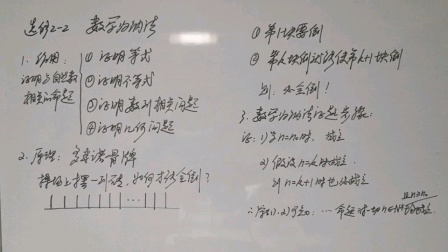 选修2-2 数学归纳法
1. 作用:
证明与自然数
相关的命题
① 证明等式
② 证明不等式
③ 证明数列相关问题
④ 证明几何问题
2. 原理: 多米诺骨牌
操场上摆一列砖, 如何才该全倒?
① 第1块要倒
② 第k块倒可以使第k+1块倒
则: 必全倒!
3. 数学归纳法证题步骤:
证: 1) 当n=n₀时, 成立
2) 假设n=k时成立
则n=k+1时也成立
∴ 由1) 2)可知: … 命题对